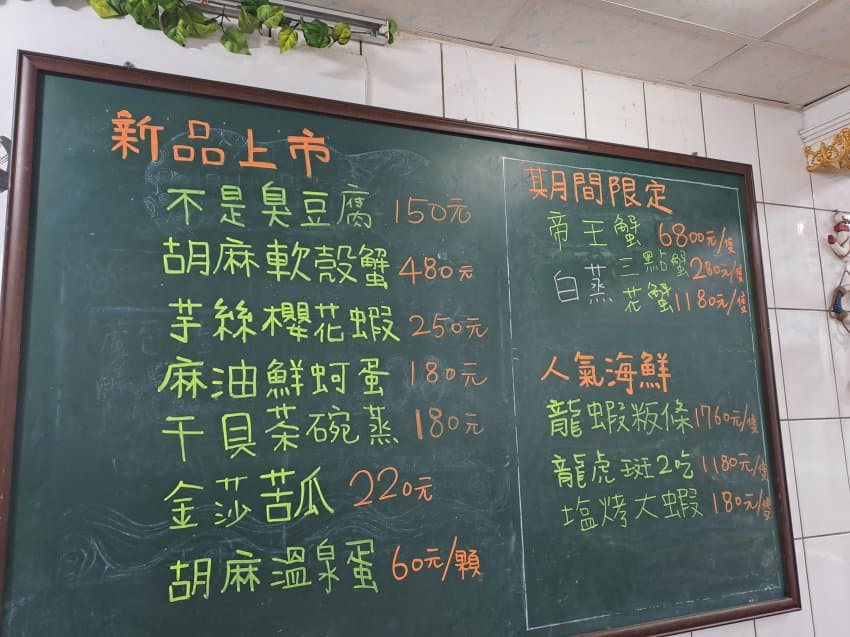 新品上市
不是臭豆腐 150元
胡麻軟殼蟹 480元
芋絲櫻花蝦 250元
麻油鮮蚵蛋 180元
干貝茶碗蒸 180元
金莎苦瓜 220元
胡麻溫泉蛋 60元/顆
期間限定
帝王蟹 6800元/隻
白蒸 三點蟹 280元/隻
花蟹 1180元/隻
人氣海鮮
龍蝦粄條 1760元/隻
龍虎斑2吃 1180元/隻
塩烤大蝦 180元/隻